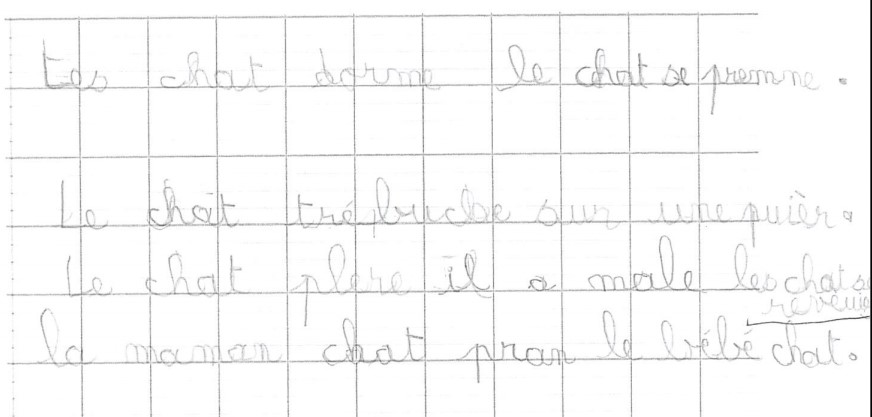 Les chat dorme le chat se premne.
Le chat trébuche sur une puièr.
Le chat plere il a male les chat se
reveuie
la maman chat pran le bébé chat.